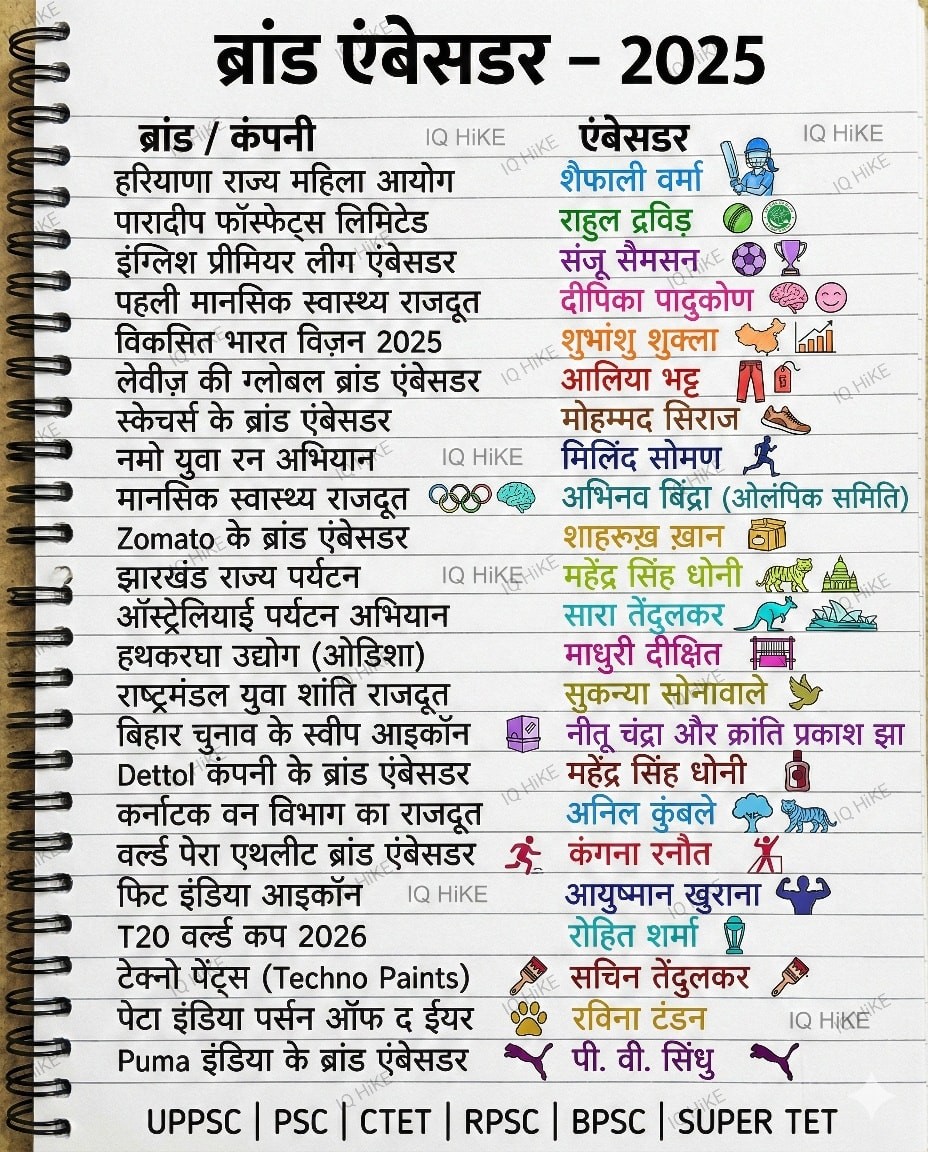 ब्रांड एंबेसडर – 2025
ब्रांड / कंपनी IQ HiKE एंबेसडर IQ HiKE
हरियाणा राज्य महिला आयोग शैफाली वर्मा
पारादीप फॉस्फेट्स लिमिटेड राहुल द्रविड़
इंग्लिश प्रीमियर लीग एंबेसडर संजू सैमसन
पहली मानसिक स्वास्थ्य राजदूत दीपिका पादुकोण
विकसित भारत विज़न 2025 शुभांशु शुक्ला
लेवीज़ की ग्लोबल ब्रांड एंबेसडर आलिया भट्ट
स्केचर्स के ब्रांड एंबेसडर मोहम्मद सिराज
नमो युवा रन अभियान IQ HiKE मिलिंद सोमण
मानसिक स्वास्थ्य राजदूत अभिनव बिंद्रा (ओलंपिक समिति)
Zomato के ब्रांड एंबेसडर शाहरुख़ ख़ान
झारखंड राज्य पर्यटन IQ HiKE महेंद्र सिंह धोनी
ऑस्ट्रेलियाई पर्यटन अभियान सारा तेंदुलकर
हथकरघा उद्योग (ओडिशा) माधुरी दीक्षित
राष्ट्रमंडल युवा शांति राजदूत सुकन्या सोनावाले
बिहार चुनाव के स्वीप आइकॉन नीतू चंद्रा और क्रांति प्रकाश झा
Dettol कंपनी के ब्रांड एंबेसडर महेंद्र सिंह धोनी
कर्नाटक वन विभाग का राजदूत अनिल कुंबले
वर्ल्ड पेरा एथलीट ब्रांड एंबेसडर कंगना रनौत
फिट इंडिया आइकॉन IQ HiKE आयुष्मान खुराना
T20 वर्ल्ड कप 2026 रोहित शर्मा
टेक्नो पेंट्स (Techno Paints) सचिन तेंदुलकर
पेटा इंडिया पर्सन ऑफ द ईयर रविना टंडन IQ HiKE
Puma इंडिया के ब्रांड एंबेसडर पी. वी. सिंधु
UPPSC | PSC | CTET | RPSC | BPSC | SUPER TET